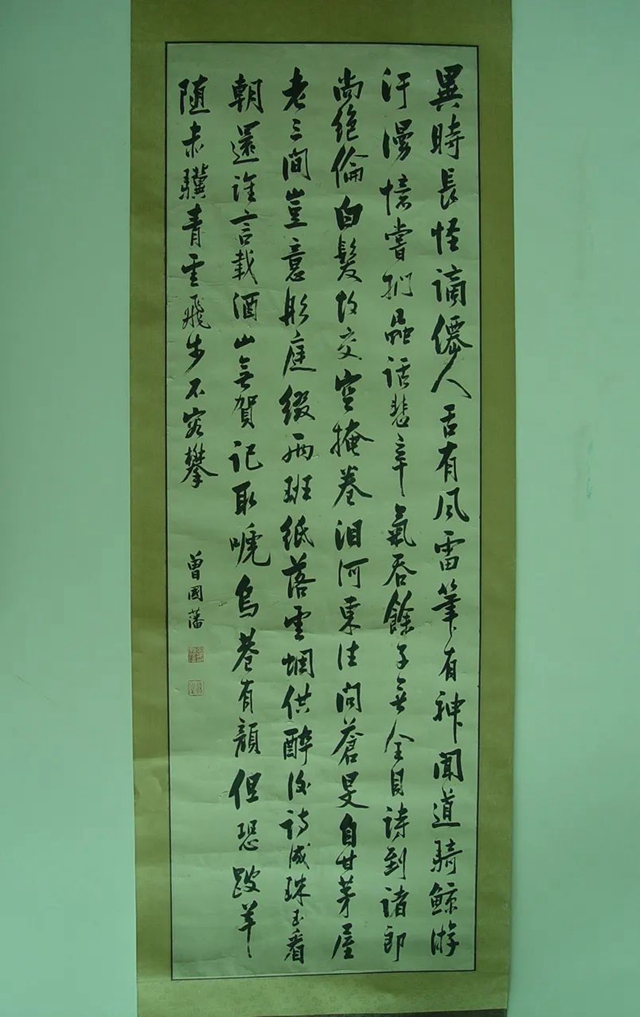 異時長怪謫僊人舌有風雷筆有神聞道騎鯨游
汗漫憶嘗捫蝨話悲辛氣吞餘子無全目詩到諸郎
尚絕倫白髮故交空掩卷泪河東注問蒼旻自甘茅屋
老三間豈意彤庭綴兩班紙落雲烟供醉後詩成珠玉看
朝還誰言載酒山無賀記取嗁烏巷有顏但恐跛羊
隨赤驥青雲飛步不容攀
曾國藩